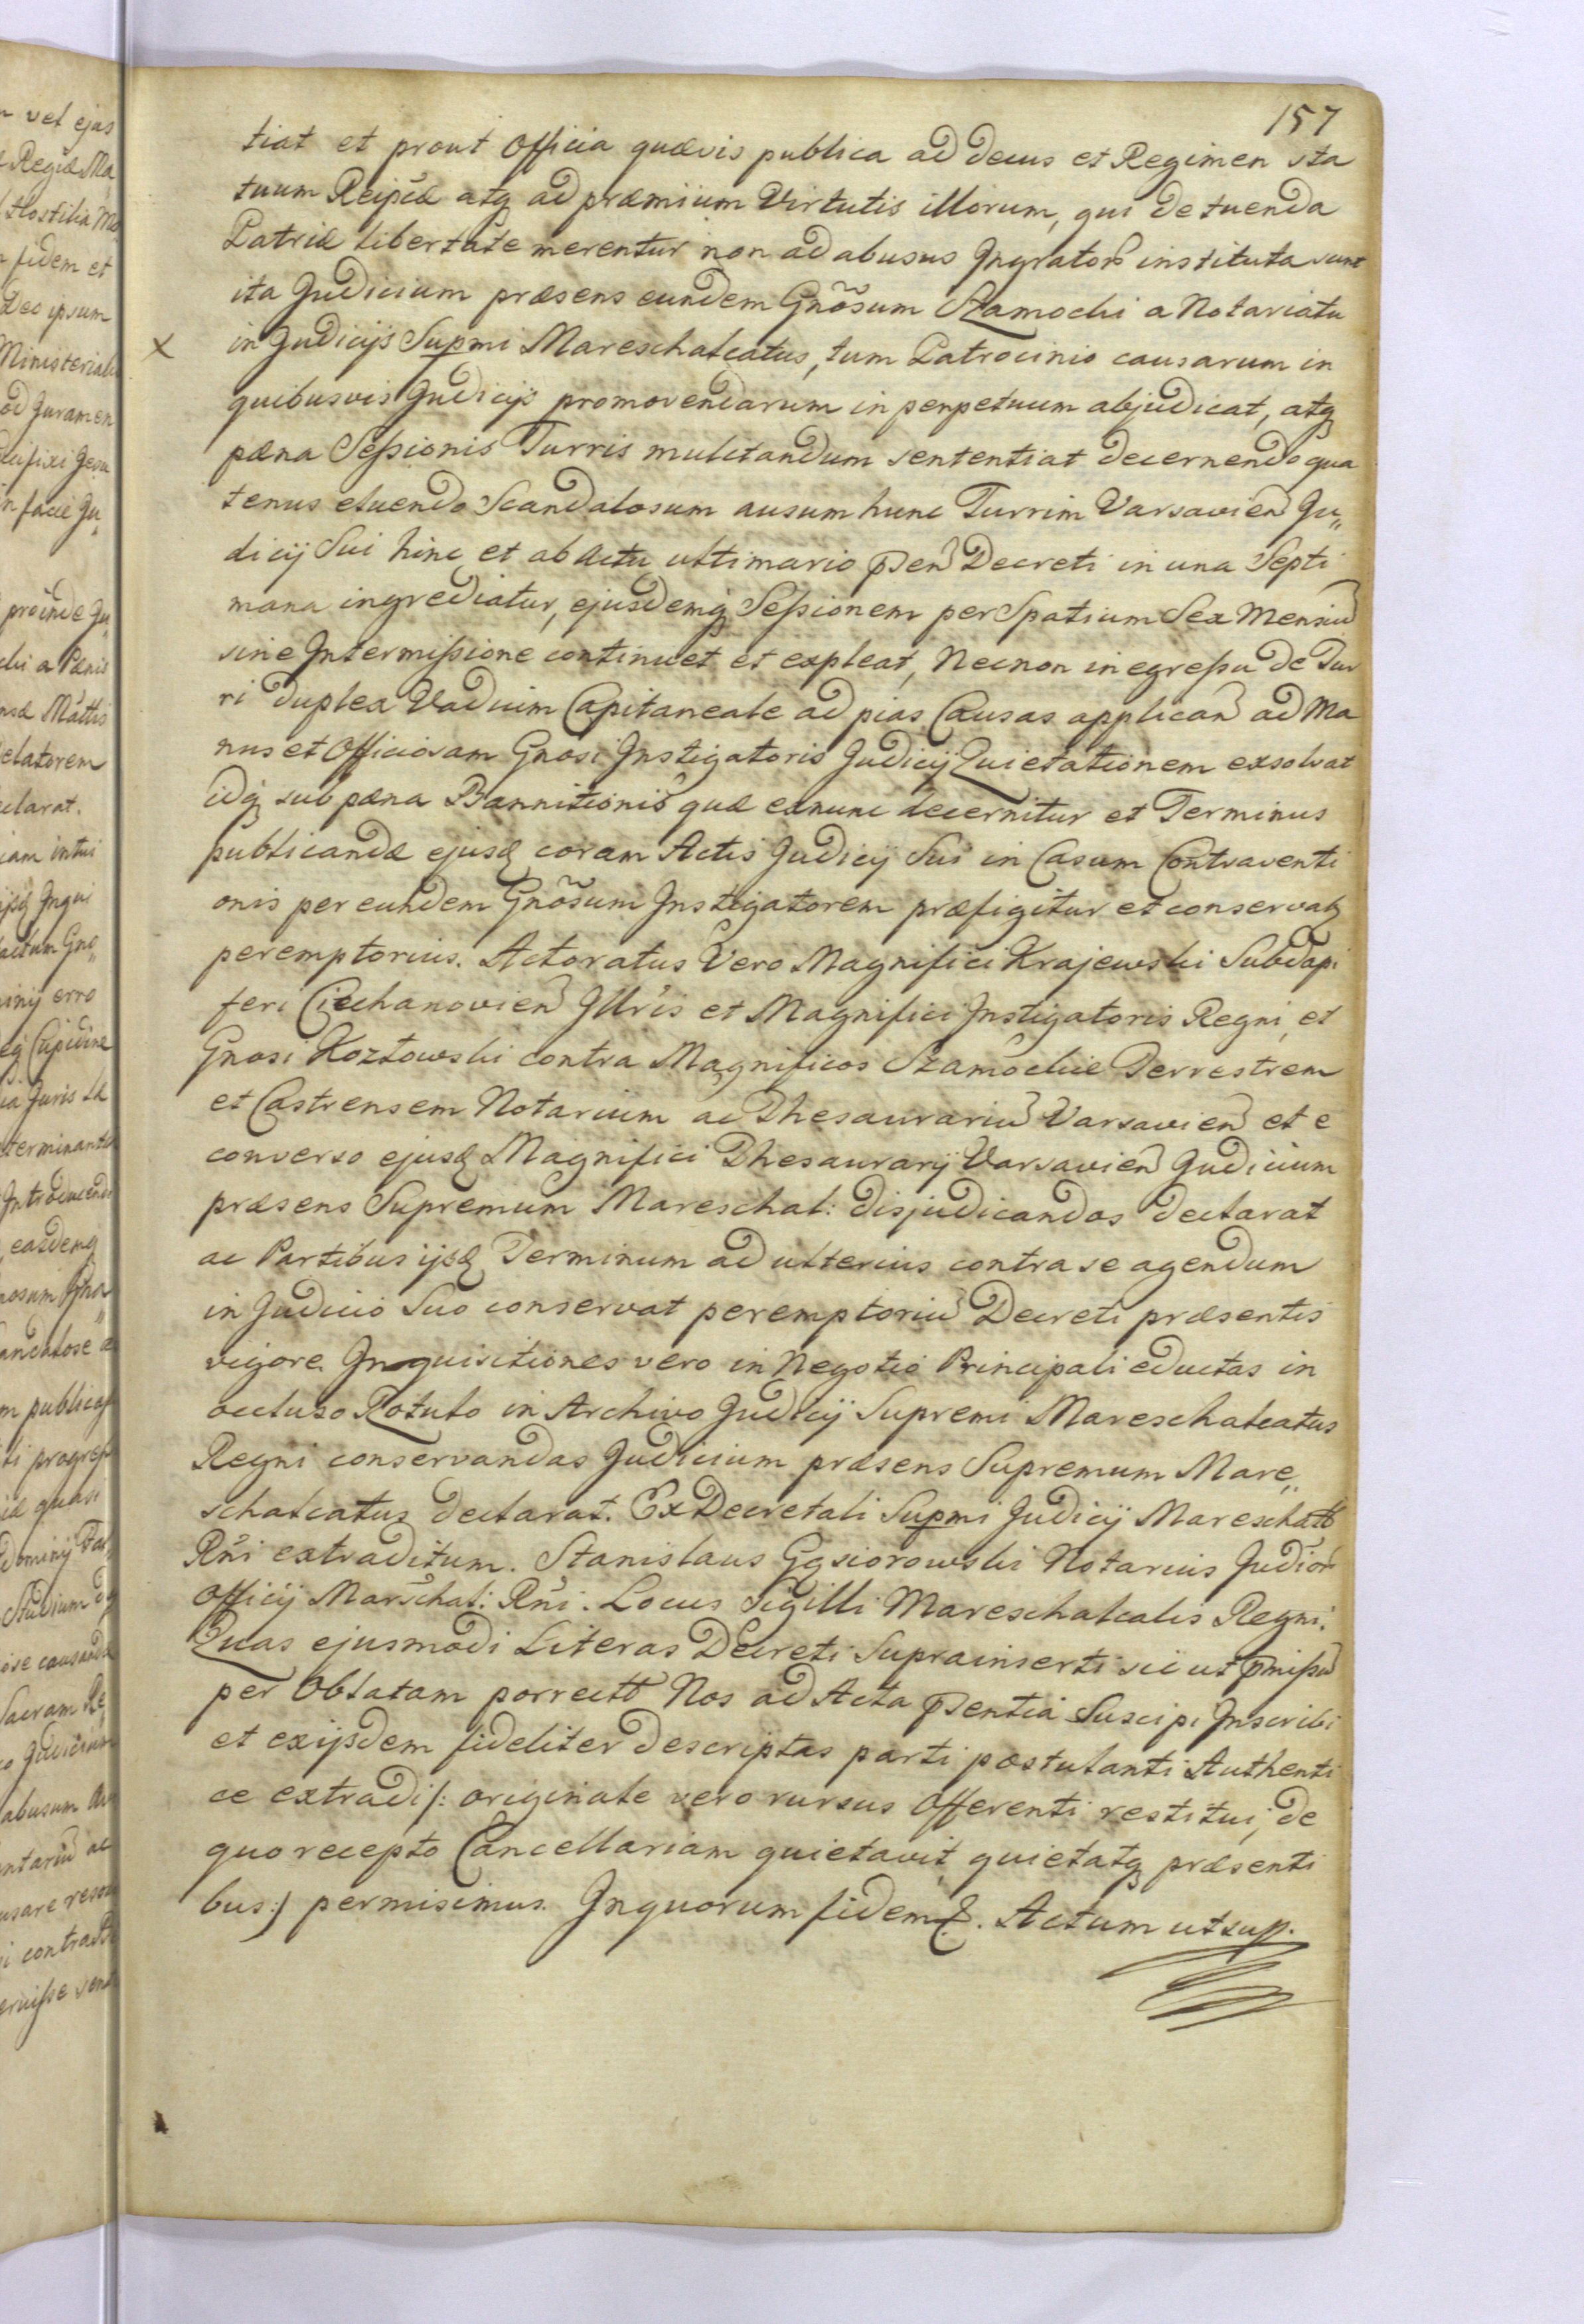 157
tiat et prout Officia quævis publica ad decus et Regimen sta
tuum Reipcæ atq ad præmium Virtutis illorum, qui de tuenda
Patriæ libertate merentur non ad abusus Ingrator instituta sunt
ita Judicium præsens eundem Gnõsum Szamocki a Notariatu
x
in Judicijs Supmi Mareschalcatus, tum Patrocinio causarum in
quibusvis Judicijs promovendarum in perpetuum abjudicat, atq
pæna Seßionis Turris mulctandum sententiat decernendo qua
tenus eluendo Scandalosum ausum hunc Turrim Varsavien Ju„
dicij Sui hinc et ab actu ultimario psen Decreti in una Septi
mana ingrediatur, ejusdemq Seßionem per Spatium Sex Mensiu
sine Intermißione continuet et expleat, Necnon in egreßu de Tur
ri duplex Vadium Capitaneale ad pias Causas applican ad Ma
nus et Officiosam Gnosi Instigatoris Judicij Quietationem exsolvat
idq sub pæna Bannitionis quæ exnunc decernitur et Terminus
publicandæ ejusd coram Actis Judicij Sui in Casum Contraventi
onis per eundem Gnõsum Instigatorem præfigitur et conservatq
peremptorius. Actoratus Vero Magnifici Krajewski Subdapi
feri Ciechanovien GUris et Magnifici Instigatoris Regni, et
Gnosi Kozłowski contra Magnificos Szamockie Terrestrem
et Castrensem Notarium ac Thesaurariu Varsavien et e
converso ejusd Magnifici Thesaurarij Varsavien Judicium
præsens Supremum Mareschal: disjudicandos declarat
ac Partibus ijsd Terminum ad ulterius contra se agendum
in Judicio Suo conservat peremptoriu Decreti præsentis
vigore. Inquisitiones vero in Negotio Principali eductas in
occluso Rotulo in Archivo Judicij Supremi Mareschalcatus
Regni conservandas Judicium præsens Supremum Mare„
schalcatus declarat. Ex Decretali Supmi Judicij Mareschalt
Rni extraditum. Stanislaus Gąsiorowski Notarius Judior
Officij Marschal: Rni. Locus Sigilli Mareschalcalis Regni.
Quas ejusmodi Literas Decreti Suprainserti sic ut pmißu
per Oblatam porrectt Nos ad Acta psentia Suscipi Inscribi
et exijsdem fideliter descriptas parti postulanti Authenti
ce extradi /: originale vero rursus Offerenti restitui, de
quo recepto Cancellariam quietavit quietatq præsenti
bus :/ permisimus. In quorum fidem &. Actum ut sup.